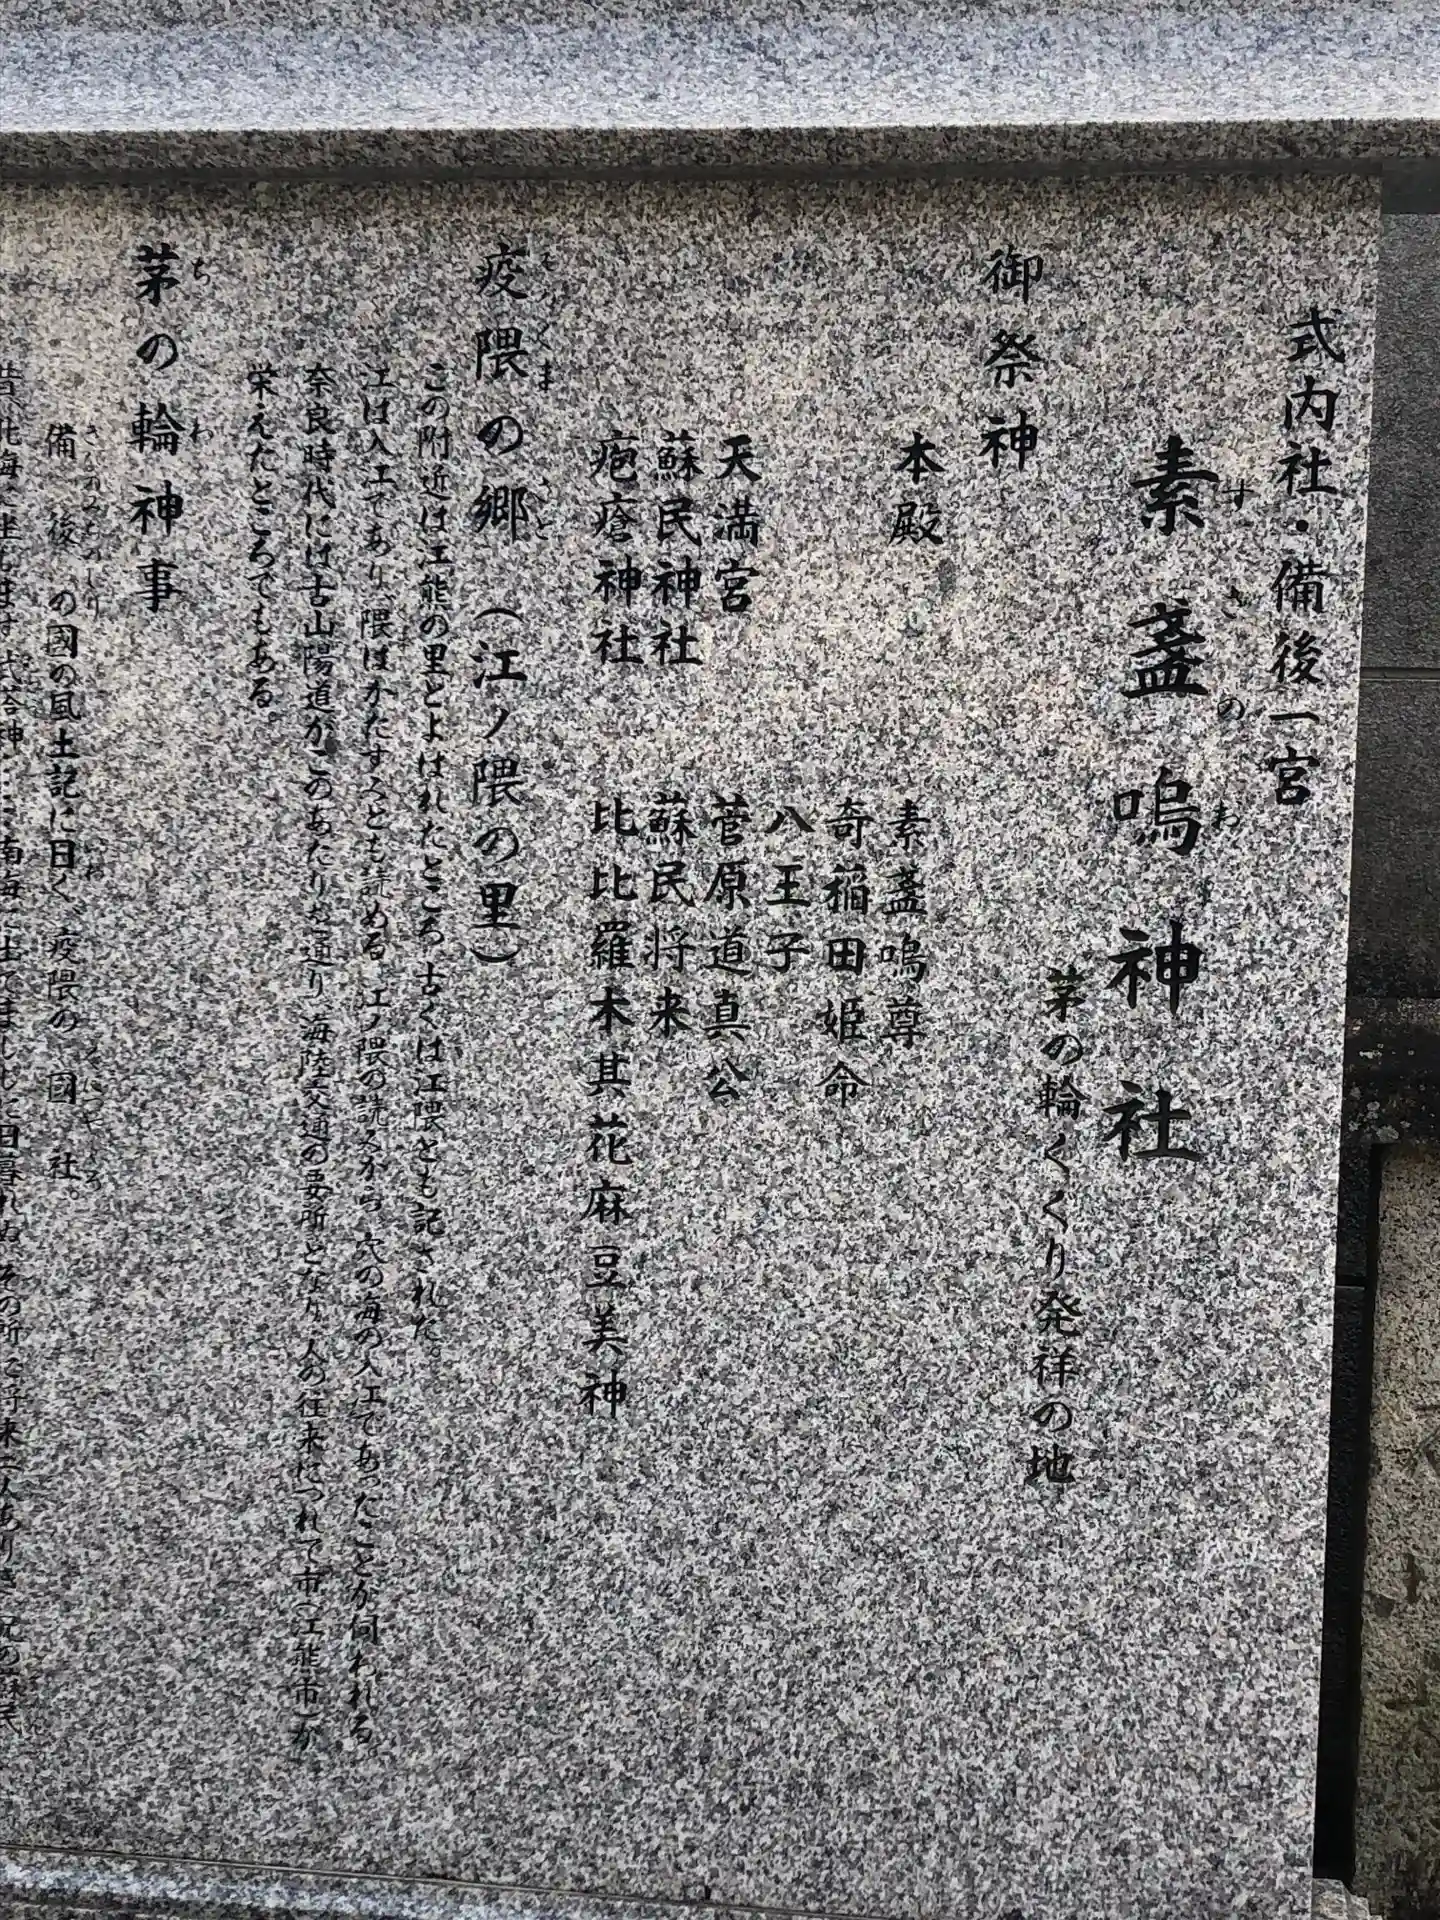 式内社・備後一宮
素盞嗚神社
すさのお
茅の輪くぐり発祥の地
御祭神
本殿 素盞嗚尊
奇稲田姫命
八王子
天満宮 菅原道真公
蘇民神社 蘇民将来
疱瘡神社 比比羅木其花麻豆美神
疫隈の郷(江ノ隈の里)
この附近は江熊の里とよばれたところ、古くは江隈とも記された。
江は入江であり、隈はかたすみとも読める。江ノ隈の読みから、穴の海の入江であったことが伺われる。
奈良時代には古山陽道がこのあたりを通り、海陸交通の要所となり、人の往来につれて市(江熊市)が
栄えたところでもある。
茅の輪神事
ちわ
備後の國の風土記に曰く、疫隈の國社。